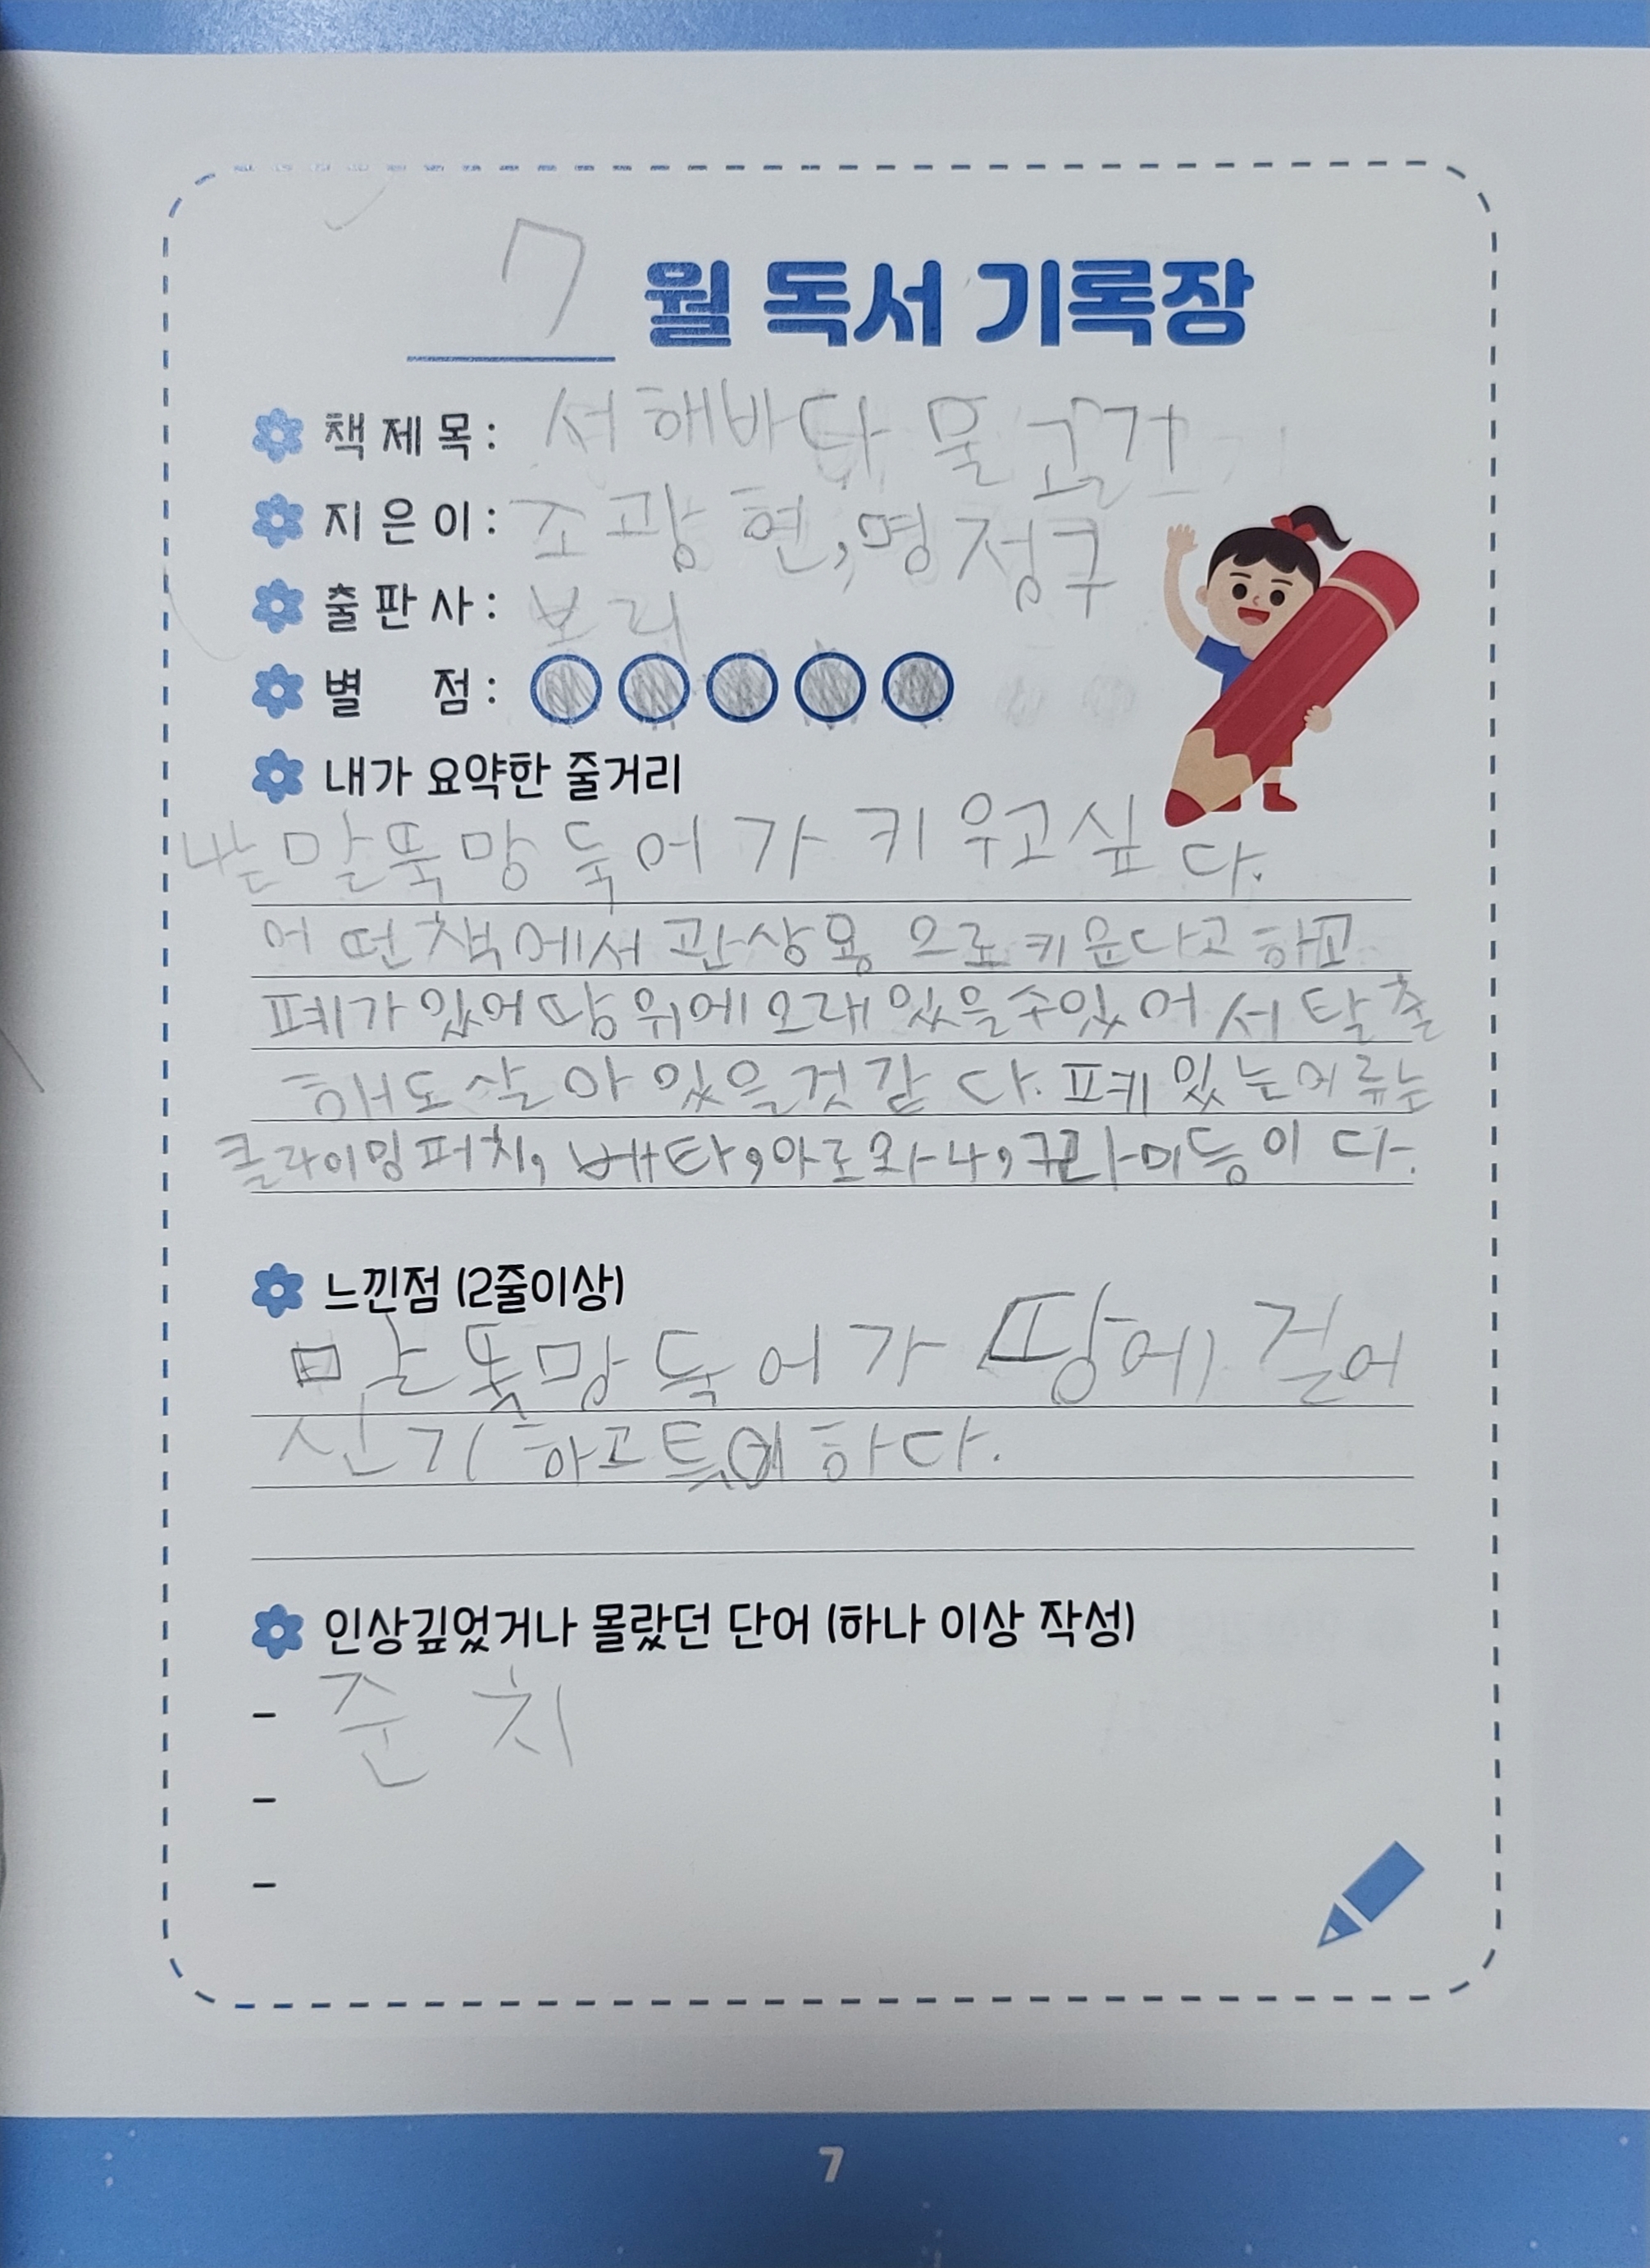 7 월 독서 기록장
책 제 목 : 서해바다 물고기
지 은 이 : 조광현, 명정구
출 판 사 : 보리
별 점 :
내가 요약한 줄거리
나는 말뚝망둑어가 키우고싶다.
어떤책에서 관상용으로 키운다고 하고
폐가있어 땅위에 오래있을수있어서 탈출
해도 살아있을것같다. 폐있는어류는
클라이밍퍼치, 베타, 아로와나, 구라미등이다.
느낀점 (2줄이상)
말뚝망둑어가 땅에 걸어
신기하고 특이하다.
인상깊었거나 몰랐던 단어 (하나 이상 작성)
- 준치
-
-
7